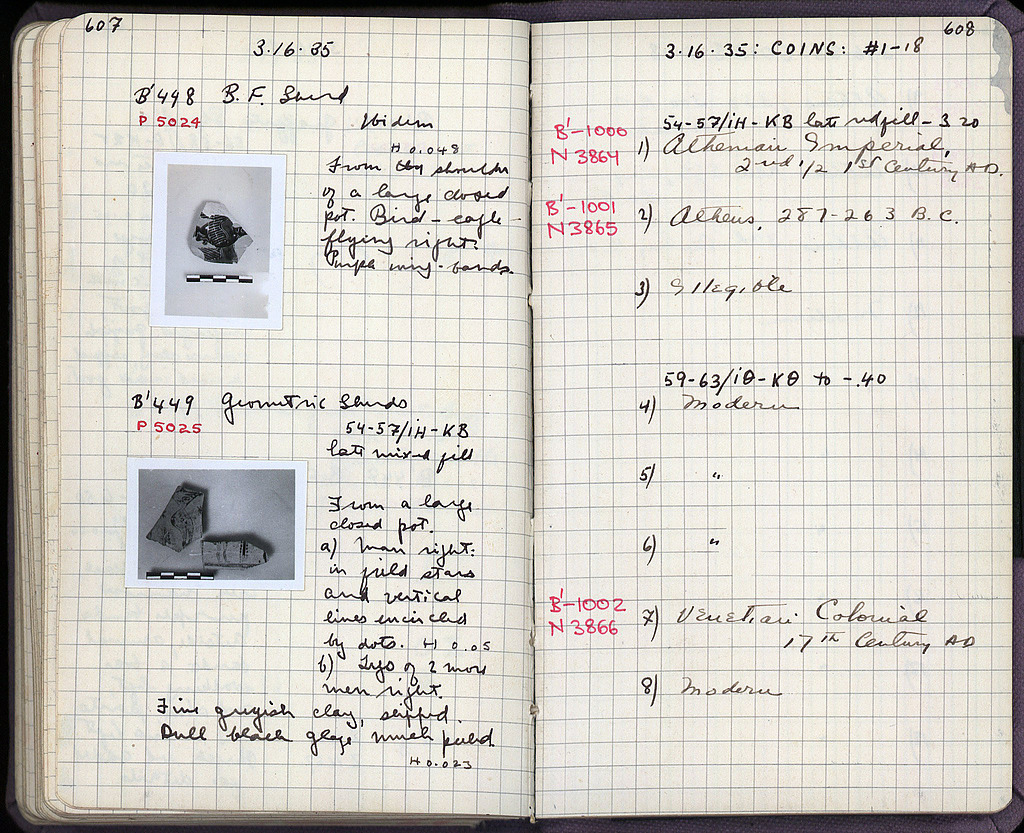 607
3·16·35
B'448 B.F. Sherd
P 5024
Ibidem
H 0.048
From shoulder
of a large closed
pot. Bird - eagle -
flying right.
Purple wing-bands.
B'449 Geometric Sherds
P 5025
54-57/ΙΗ-ΚΒ
late mixed fill
From a large
closed pot.
a) Man right:
in field stars
and vertical
lines encircled
by dots. H 0.05
b) Legs of 2 more
men right.
Fine greyish clay, slipped.
Dull black glaze much peeled.
H 0.023
608
3·16·35: COINS: #1-18
54-57/ΙΗ-ΚΒ late fill - 3 20
B'-1000
N 3864
1) Athenian Imperial,
2nd 1/2 1st Century A.D.
B'-1001
N 3865
2) Athens, 287-263 B.C.
3) Illegible
59-63/ΙΘ-ΚΘ to -.40
4) Modern
5) "
6) "
B'-1002
N 3866
7) Venetian Colonial
17th Century AD
8) Modern